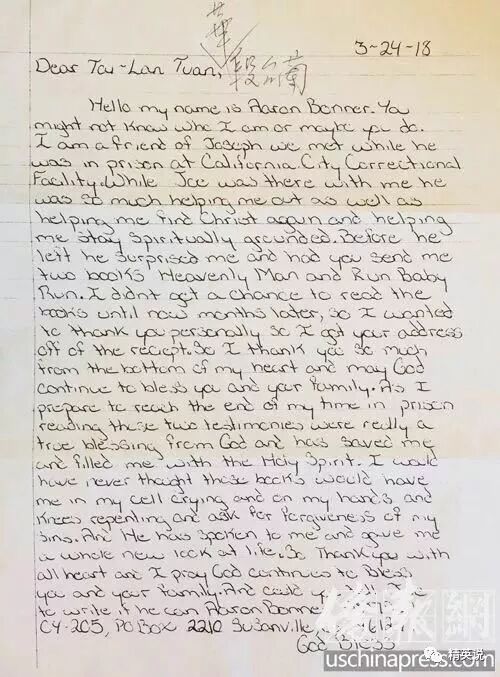 華
3-24-18
Dear Tai-Lan Tuan,
段台蘭
Hello my name is Aaron Bonner. You
might not know who I am or maybe you do.
I am a friend of Joseph we met while he
was in prison at California City Correctional
Facility. While Joe was there with me he
was so much helping me out as well as
helping me find Christ again and helping
me stay spiritually grounded. Before he
left he surprised me and had you send me
two books Heavenly Man and Run Baby
Run. I didn't get a chance to read the
books until now months later, so I wanted
to thank you personally so I got your address
off of the reciept. So I thank you so much
from the bottom of my heart and may God
continue to bless you and your family. As I
prepare to reach the end of my time in prison
reading these two testimonies were really a
true blessing from God and has saved me
and filled me with the Holy Spirit. I would
have never thought these books would have
me in my cell crying and on my hands and
knees repenting and ask for forgiveness of my
sins. And He has spoken to me and gave me
a whole new look at life. So Thank you with
all heart and I pray God continues to Bless
you and your family. And could you
to write if he can Aaron Bonner
C4-205, PO Box 2210 Susanville,
God Bless
僑報網
uschinapress.com
精英说